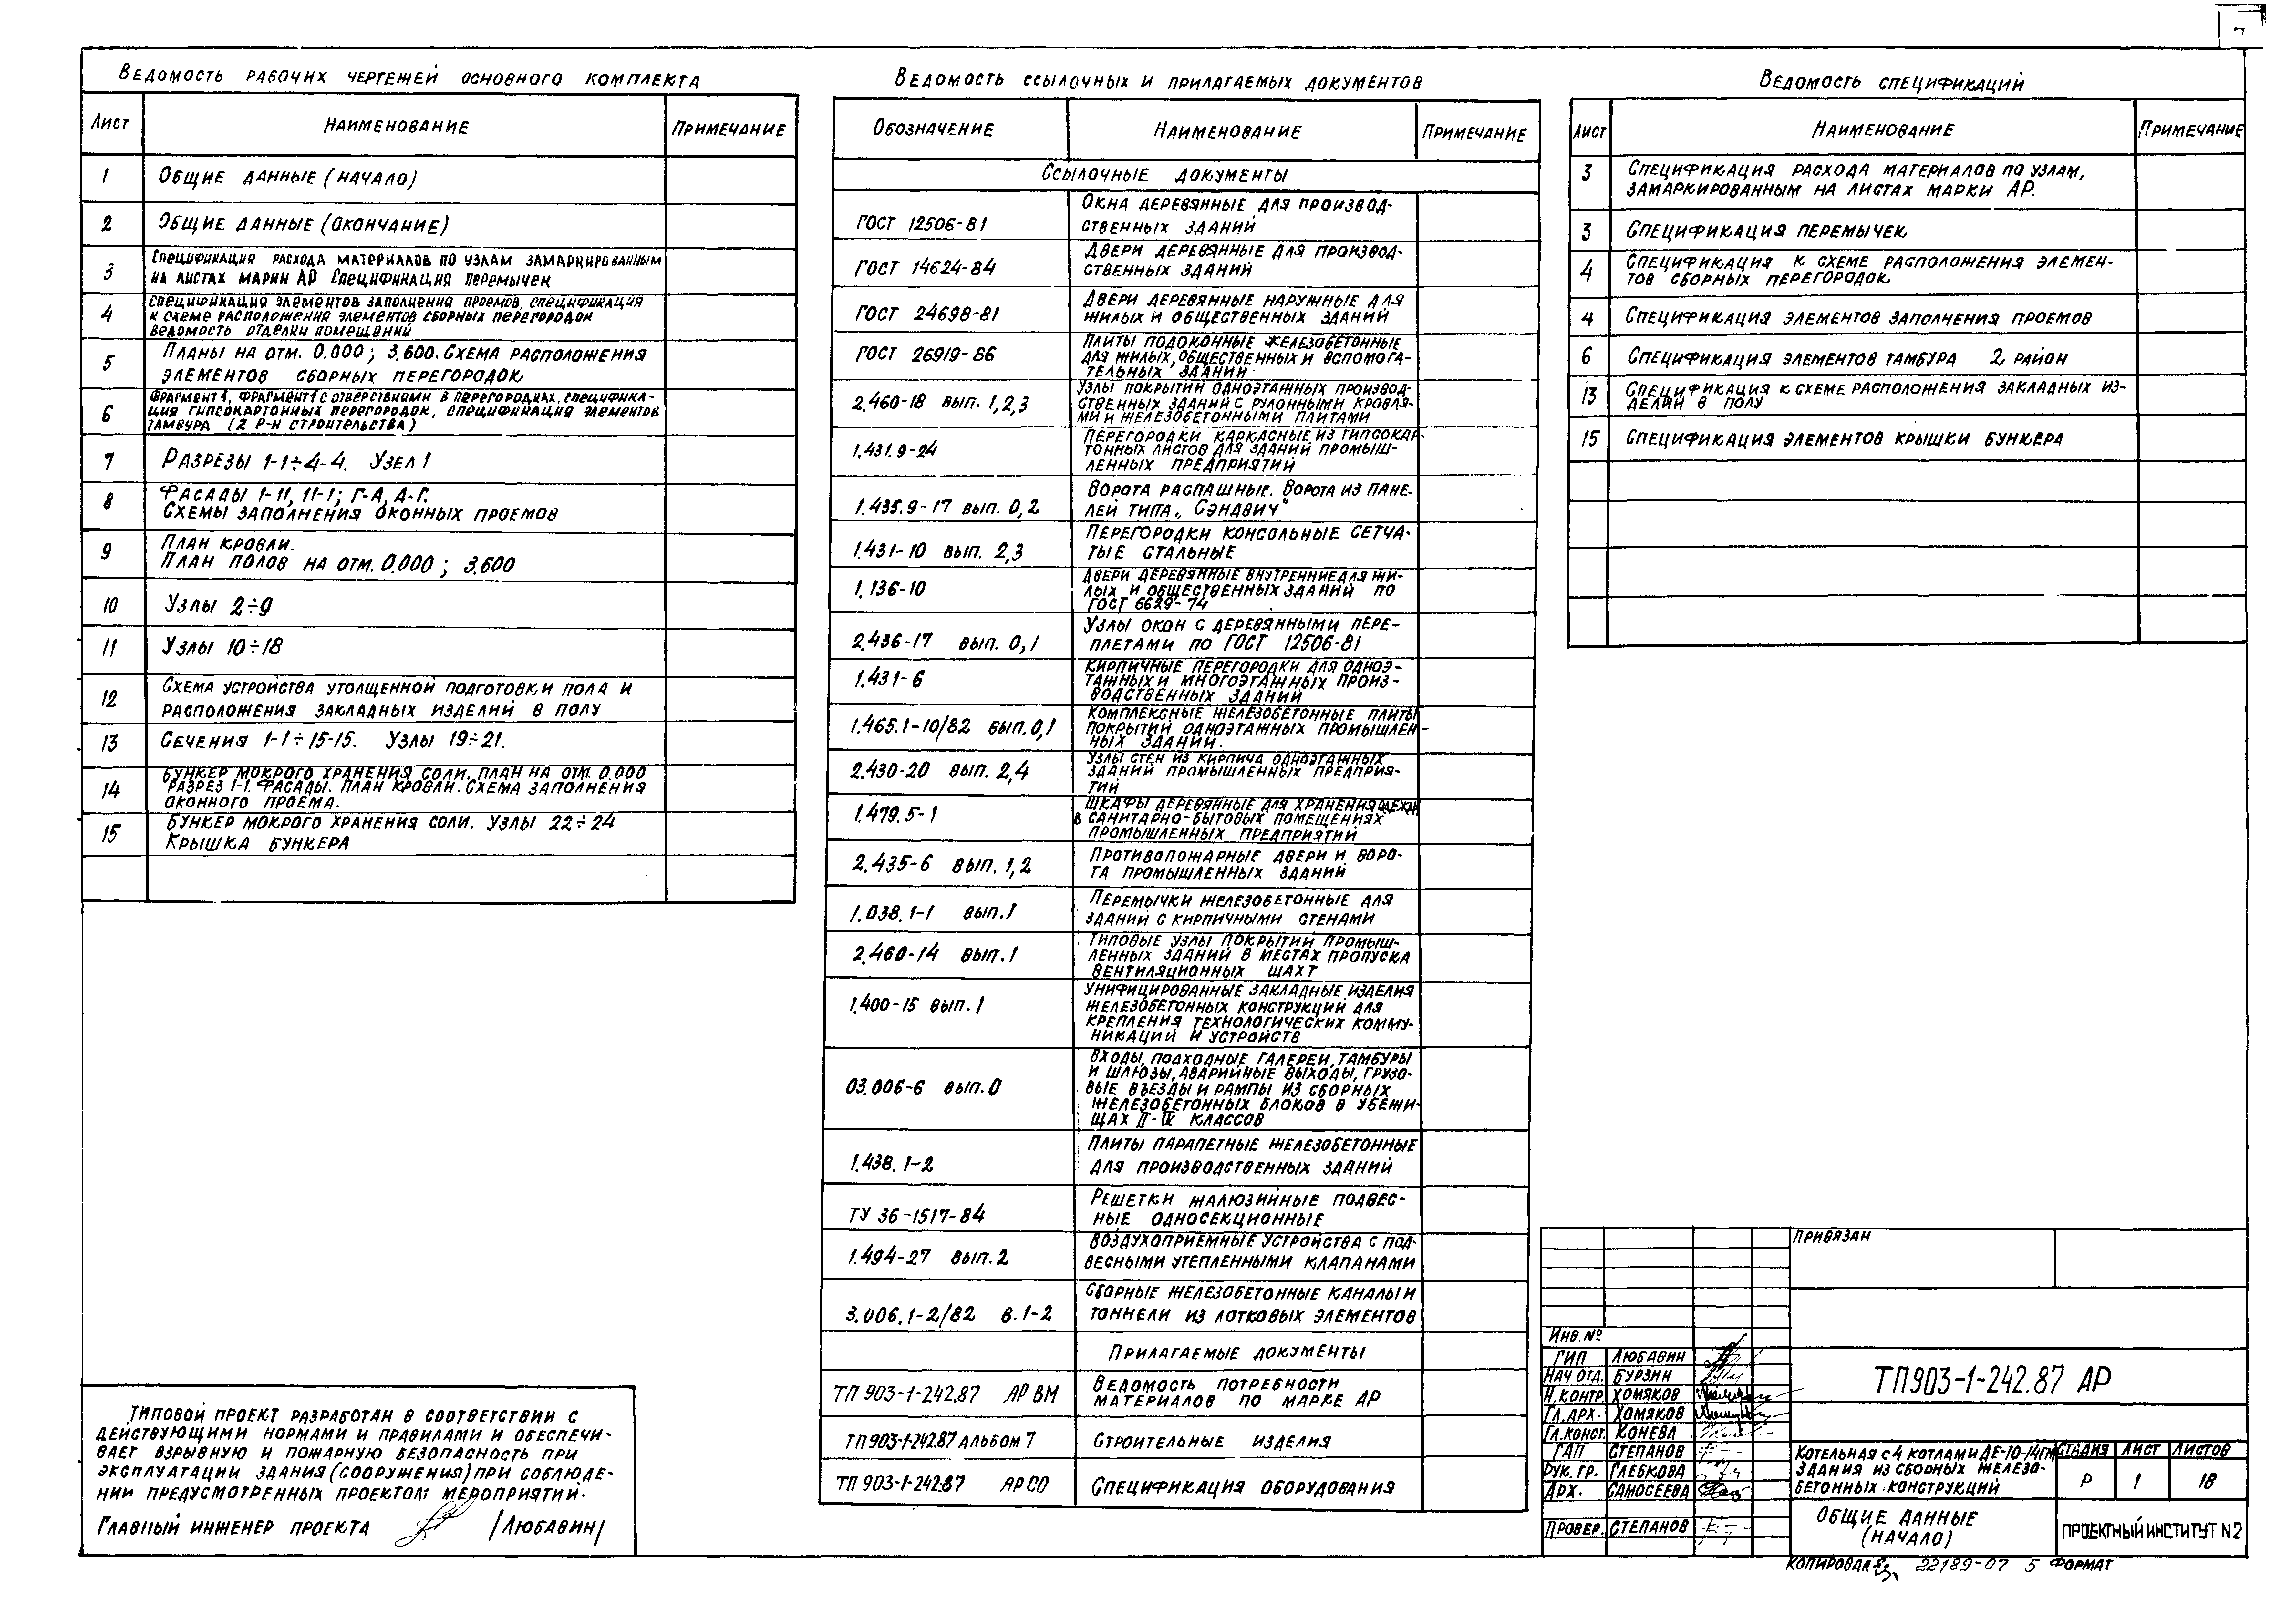 Ведомость рабочих чертежей основного комплекта
Лист Наименование Примечание
1 Общие данные (начало)
2 Общие данные (окончание)
3 Спецификация расхода материалов по узлам замаркированным
на листах марки АР Спецификация перемычек
4 Спецификация элементов заполнения проемов, спецификация
к схеме расположения элементов сборных перегородок
ведомость отделки помещений
5 Планы на отм. 0.000; 3.600. Схема расположения
элементов сборных перегородок
6 Фрагмент 1, фрагмент 1 с отверстиями в перегородках, специфика-
ция гипсокартонных перегородок, спецификация элементов
тамбура (2 р-н строительства)
7 Разрезы 1-1÷4-4. Узел 1
8 Фасады 1-11, 11-1; Г-А, А-Г.
Схемы заполнения оконных проемов
9 План кровли.
План полов на отм. 0.000; 3.600
10 Узлы 2÷9
11 Узлы 10÷18
12 Схема устройства утолщенной подготовки пола и
расположения закладных изделий в полу
13 Сечения 1-1÷15-15. Узлы 19÷21.
14 Бункер мокрого хранения соли. План на отм. 0.000
Разрез 1-1. Фасады. План кровли. Схема заполнения
оконного проема.
15 Бункер мокрого хранения соли. Узлы 22÷24
Крышка бункера
Типовой проект разработан в соответствии с
действующими нормами и правилами и обеспечи-
вает взрывную и пожарную безопасность при
эксплуатации здания (сооружения) при соблюде-
нии предусмотренных проектом мероприятий.
Главный инженер проекта /Любавин/
Ведомость ссылочных и прилагаемых документов
Обозначение Наименование Примечание
Ссылочные документы
ГОСТ 12506-81 Окна деревянные для производ-
ственных зданий
ГОСТ 14624-84 Двери деревянные для производ-
ственных зданий
ГОСТ 24698-81 Двери деревянные наружные для
жилых и общественных зданий
ГОСТ 26919-86 Плиты подоконные железобетонные
для жилых, общественных и вспомога-
тельных зданий
2.460-18 вып. 1,2,3 Узлы покрытий одноэтажных производ-
ственных зданий с рулонными кровля-
ми и железобетонными плитами
1.431.9-24 Перегородки каркасные из гипсокар-
тонных листов для зданий промыш-
ленных предприятий
1.435.9-17 вып. 0,2 Ворота распашные. Ворота из пане-
лей типа „Сэндвич"
1.431-10 вып. 2,3 Перегородки консольные сетча-
тые стальные
1.136-10 Двери деревянные внутренние для жи-
лых и общественных зданий по
ГОСТ 6629-74
2.436-17 вып. 0,1 Узлы окон с деревянными пере-
плетами по ГОСТ 12506-81
1.431-6 Кирпичные перегородки для одноэ-
тажных и многоэтажных произ-
водственных зданий
1.465.1-10/82 вып. 0,1 Комплексные железобетонные плиты
покрытий одноэтажных промышлен-
ных зданий.
2.430-20 вып. 2,4 Узлы стен из кирпича одноэтажных
зданий промышленных предприя-
тий
1.479.5-1 Шкафы деревянные для хранения одежды
в санитарно-бытовых помещениях
промышленных предприятий
2.435-6 вып. 1,2 Противопожарные двери и воро-
та промышленных зданий
1.038.1-1 вып. 1 Перемычки железобетонные для
зданий с кирпичными стенами
2.460-14 вып. 1 Типовые узлы покрытий промыш-
ленных зданий в местах пропуска
вентиляционных шахт
1.400-15 вып. 1 Унифицированные закладные изделия
железобетонных конструкций для
крепления технологических комму-
никаций и устройств
03.006-6 вып. 0 Входы, подходные галереи, тамбуры
и шлюзы, аварийные выходы, грузо-
вые въезды и рампы из сборных
железобетонных блоков в убежи-
щах II-IV классов
1.438.1-2 Плиты парапетные железобетонные
для производственных зданий
ТУ 36-1517-84 Решетки жалюзийные подвес-
ные односекционные
1.494-27 вып. 2 Воздухоприемные устройства с под-
весными утепленными клапанами
3.006.1-2/82 в. 1-2 Сборные железобетонные каналы и
тоннели из лотковых элементов
Прилагаемые документы
ТП 903-1-242.87 АР ВМ Ведомость потребности
материалов по марке АР
ТП 903-1-242.87 Альбом 7 Строительные изделия
ТП 903-1-242.87 АР СО Спецификация оборудования
Ведомость спецификаций
Лист Наименование Примечание
3 Спецификация расхода материалов по узлам,
замаркированным на листах марки АР.
3 Спецификация перемычек
4 Спецификация к схеме расположения элемен-
тов сборных перегородок
4 Спецификация элементов заполнения проемов
6 Спецификация элементов тамбура 2 район
13 Спецификация к схеме расположения закладных из-
делий в полу
15 Спецификация элементов крышки бункера
Привязан
Инв. №
ГИП Любавин
Нач. отд. Бурзин
Н. контр. Хомяков
Гл. арх. Хомяков
Гл. конст. Конева
ГАП Степанов
Рук. гр. Глебкова
Арх. Самосеева
Провер. Степанов
ТП 903-1-242.87 АР
Котельная с 4 котлами ДЕ-10-14ГМ
здания из сборных железо-
бетонных конструкций
Стадия Лист Листов
Р 1 18
Общие данные
(начало)
Проектный институт N2
Копировал 22189-07 5 Формат